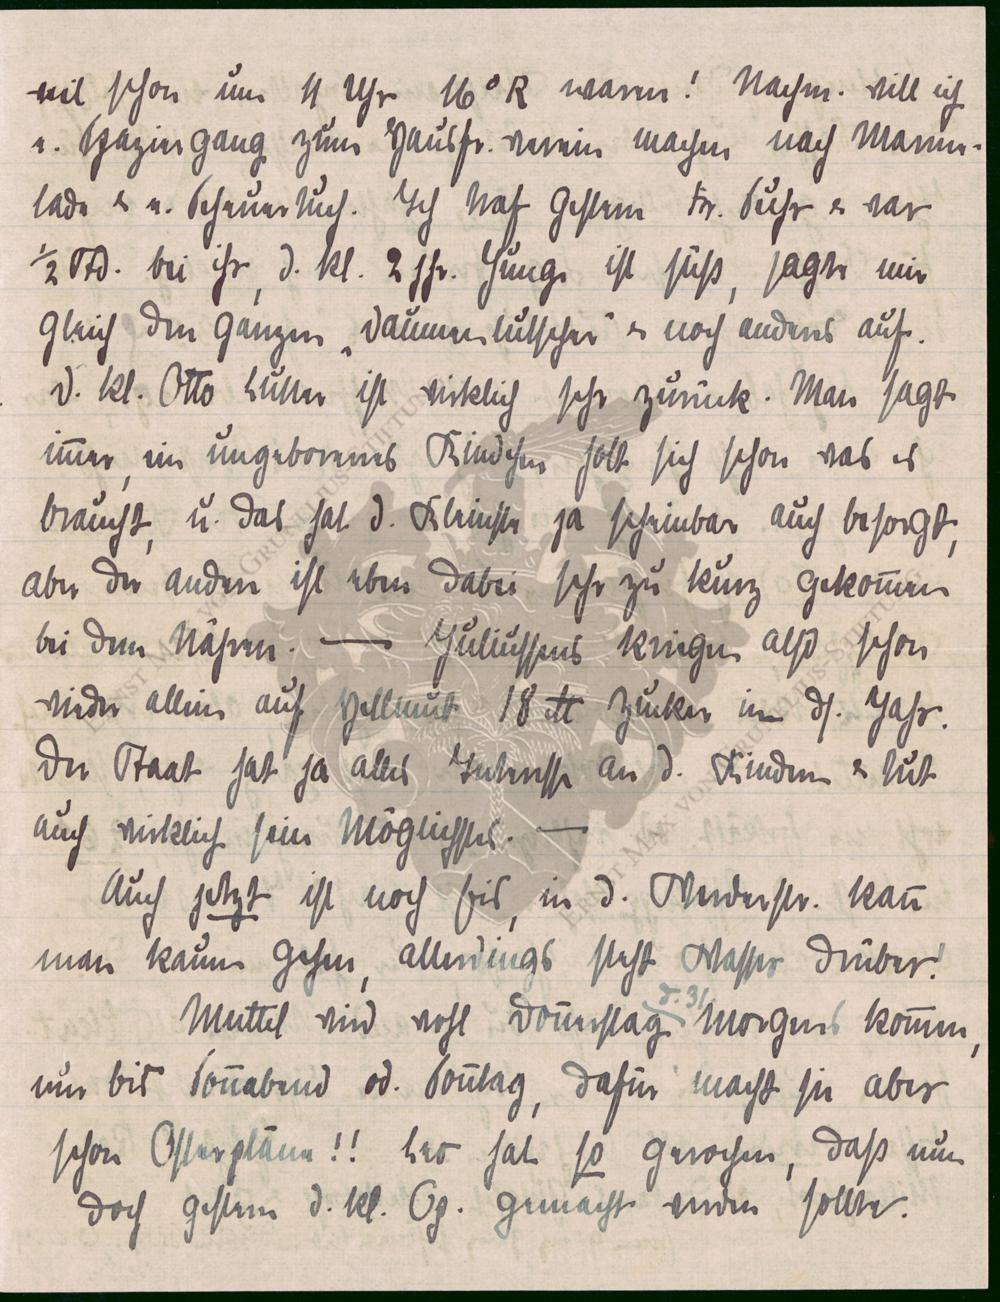 weil schon um 11 Uhr 16° R waren! Nachm. will ich
e. Spaziergang zum Hausfr. verein machen nach Marme-
lade & e. Scheuertuch. Ich traf gestern Fr. Suhr & war
½ Std. bei ihr, d. kl. 2 jhr. Junge ist süß, sagte mir
gleich den ganzen „Daumenlutscher" & noch anderes auf.
D. kl. Otto Lutter ist wirklich sehr zurück. Man sagt
immer, ein ungeborenes Kindchen holt sich schon was es
braucht, u. das hat d. Kleinste ja scheinbar auch besorgt,
aber der andere ist eben dabei sehr zu kurz gekommen
bei dem Nähren. — Juliussens kriegen also schon
wieder allein auf Hellmut 18 ℔ Zucker in ds. Jahr.
Der Staat hat ja alles Interesse an d. Kindern & tut
auch wirklich sein Möglichstes. —
Auch jetzt ist noch Eis, in d. Werderstr. kann
man kaum gehen, allerdings steht Wasser drüber!
d. 31.
Muttel wird wohl Donnerstag Morgens kommen,
nur bis Sonnabend od. Sonntag, dafür macht sie aber
schon Osterpläne!! Leo hat so gerochen, daß nun
doch gestern d. kl. Op. gemacht werden sollte.
ERNST MAX VON GRULIUS-STIFTUNG
ERNST MAX VON GRULIUS-STIFTUNG